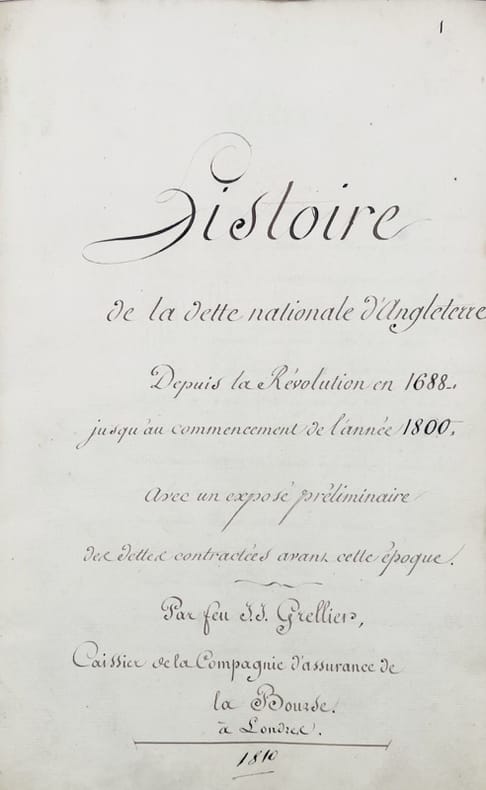 1
Histoire
de la dette nationale d'Angleterre
Depuis la Révolution en 1688.
jusqu'au commencement de l'année 1800.
Avec un exposé préliminaire
des dettes contractées avant cette époque.
Par feu J. J. Grellier,
Caissier de la Compagnie d'assurance de
la Bourse.
à Londres.
1810